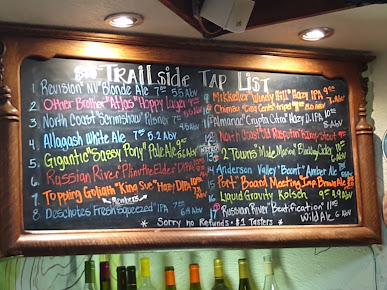 Trailside Tap List
1 Revision "NV" Blonde Ale 7 5.5 ABV
2 Other Brother "Atlas" Hoppy Lager
3 North Coast "Scrimshaw" Pilsner 7
4 Allagash White Ale 7 5.2 ABV
5 Gigantic "Sassy Pony" Pale Ale
6 Russian River Pliny the Elder DIPA
7 Toppling Goliath "King Sue" Hazy DIPA
8 Deschutes Fresh Squeezed IPA
Mikkeller "Windy Hill" Hazy IPA
Chimay "Cinq Cents" tripel
Almanac "Crypto Citra" Hazy DIPA
North Coast Old Rasputin Imp. Stout
2 Towns "Made Marion" Blackberry Cider
14 Anderson Valley "Boont" Amber Ale
15 Port Board Meeting Imp Brown Ale
16 Liquid Gravity Kolsch
17 Russian River "Beatification"
Wild Ale 6 ABV
* Sorry no Refunds · $1 Tasters *